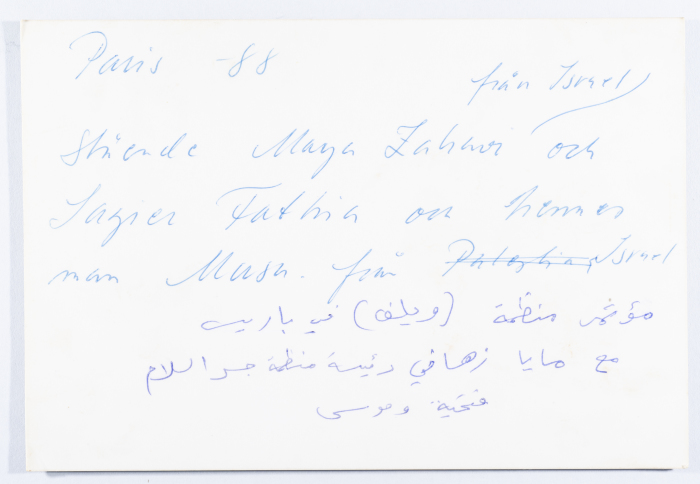 Paris -88
från Israel
Stående Maya Zahavi och
Fathia och hennes
man Musa. från ~~Palestina~~ Israel
مؤتمر منظمة (ويلف) في باريس
مع مايا زهافي رئيسة منظمة جسر السلام
فتحية وموسى